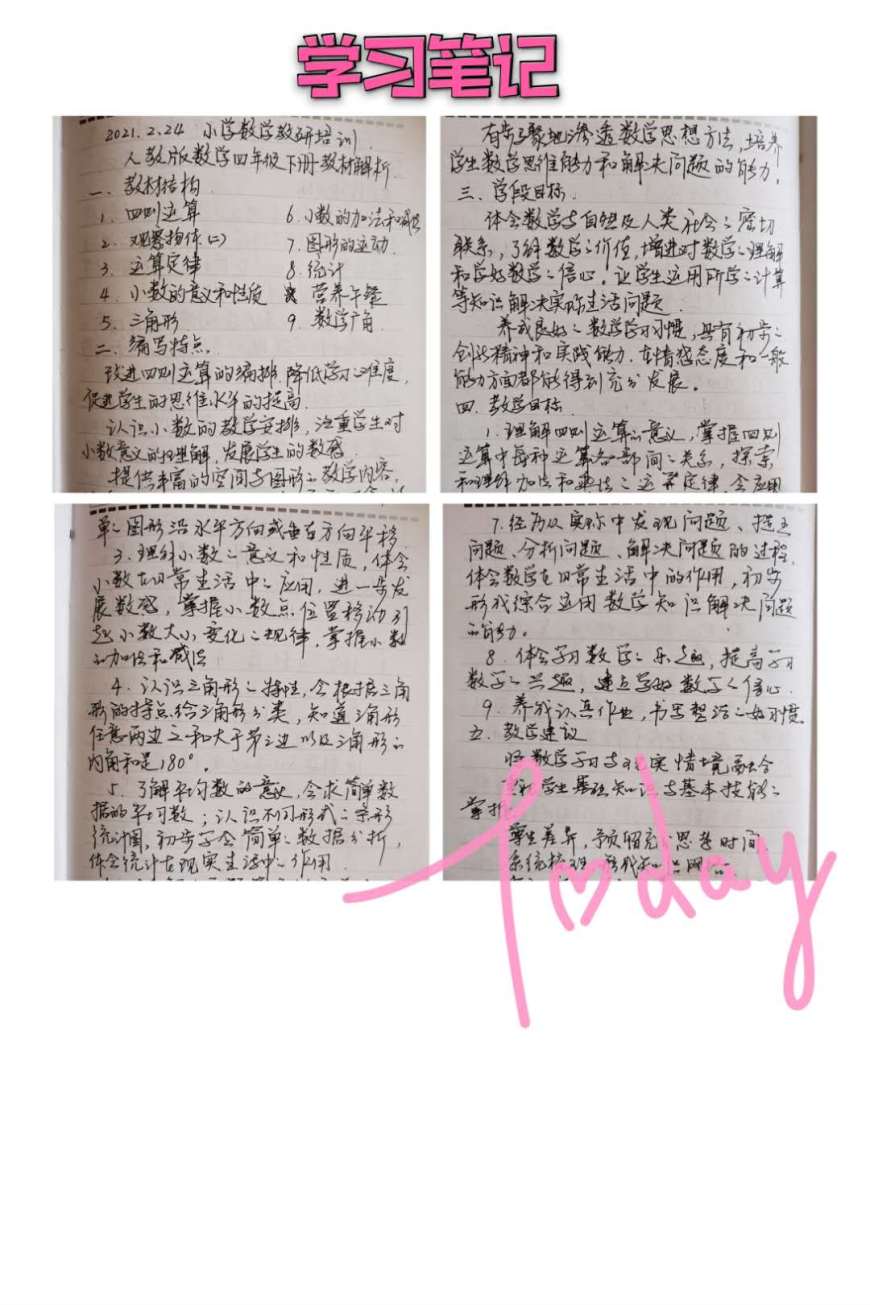 学习笔记
2021.2.24 小学数学教研培训
人教版数学四年级下册教材解析
一、教材结构
1、四则运算 6.小数的加法和减法
2、观察物体(二) 7、图形的运动
3、运算定律 8.统计
4、小数的意义和性质 营养午餐
5、三角形 9、数学广角
二、编写特点
改进四则运算的编排,降低学习的难度,
促进学生的思维水平的提高
认识小数的教学安排,注重学生对
小数意义的理解,发展学生的数感
提供丰富的空间与图形的教学内容,
有步骤地渗透数学思想方法,培养
学生数学思维能力和解决问题的能力。
三、学段目标
体会数学与自然及人类社会的密切
联系,了解数学的价值,增进对数学的理解
和学好数学的信心。让学生运用所学的计算
等知识解决实际生活问题
养成良好的数学学习习惯,具有初步的
创新精神和实践能力.在情感态度和一般
能力方面都能得到充分发展。
四、教学目标
1.理解四则运算的意义,掌握四则
运算中每种运算各部间的关系,探索
和理解加法和乘法的运算定律,会应用
单的图形沿水平方向或垂直方向平移
3、理解小数的意义和性质,体会
小数在日常生活中的应用,进一步发
展数感,掌握小数点位置移动引
起小数大小变化的规律,掌握小数
的加法和减法
4、认识三角形的特性,会根据三角
形的特点给三角形分类,知道三角形
任意两边之和大于第三边以及三角形的
内角和是180°。
5、了解平均数的意义,会求简单数
据的平均数;认识不同形式的条形
统计图,初步学会简单的数据分析,
体会统计在现实生活中的作用
7.经历从实际中发现问题、提出
问题、分析问题、解决问题的过程,
体会数学在日常生活中的作用,初步
形成综合运用数学知识解决问题
的能力。
8.体会学习数学的乐趣,提高学习
数学的兴趣,建立学好数学的信心.
9、养成认真作业,书写整洁的好习惯
五、教学建议
将数学学习与现实情境融合
学生基础知识与基本技能的
掌握
学生差异,予预留充分思考时间
系统梳理
Today